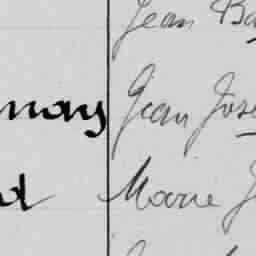 Jean Ba
nay Jean Jose
d Marie J